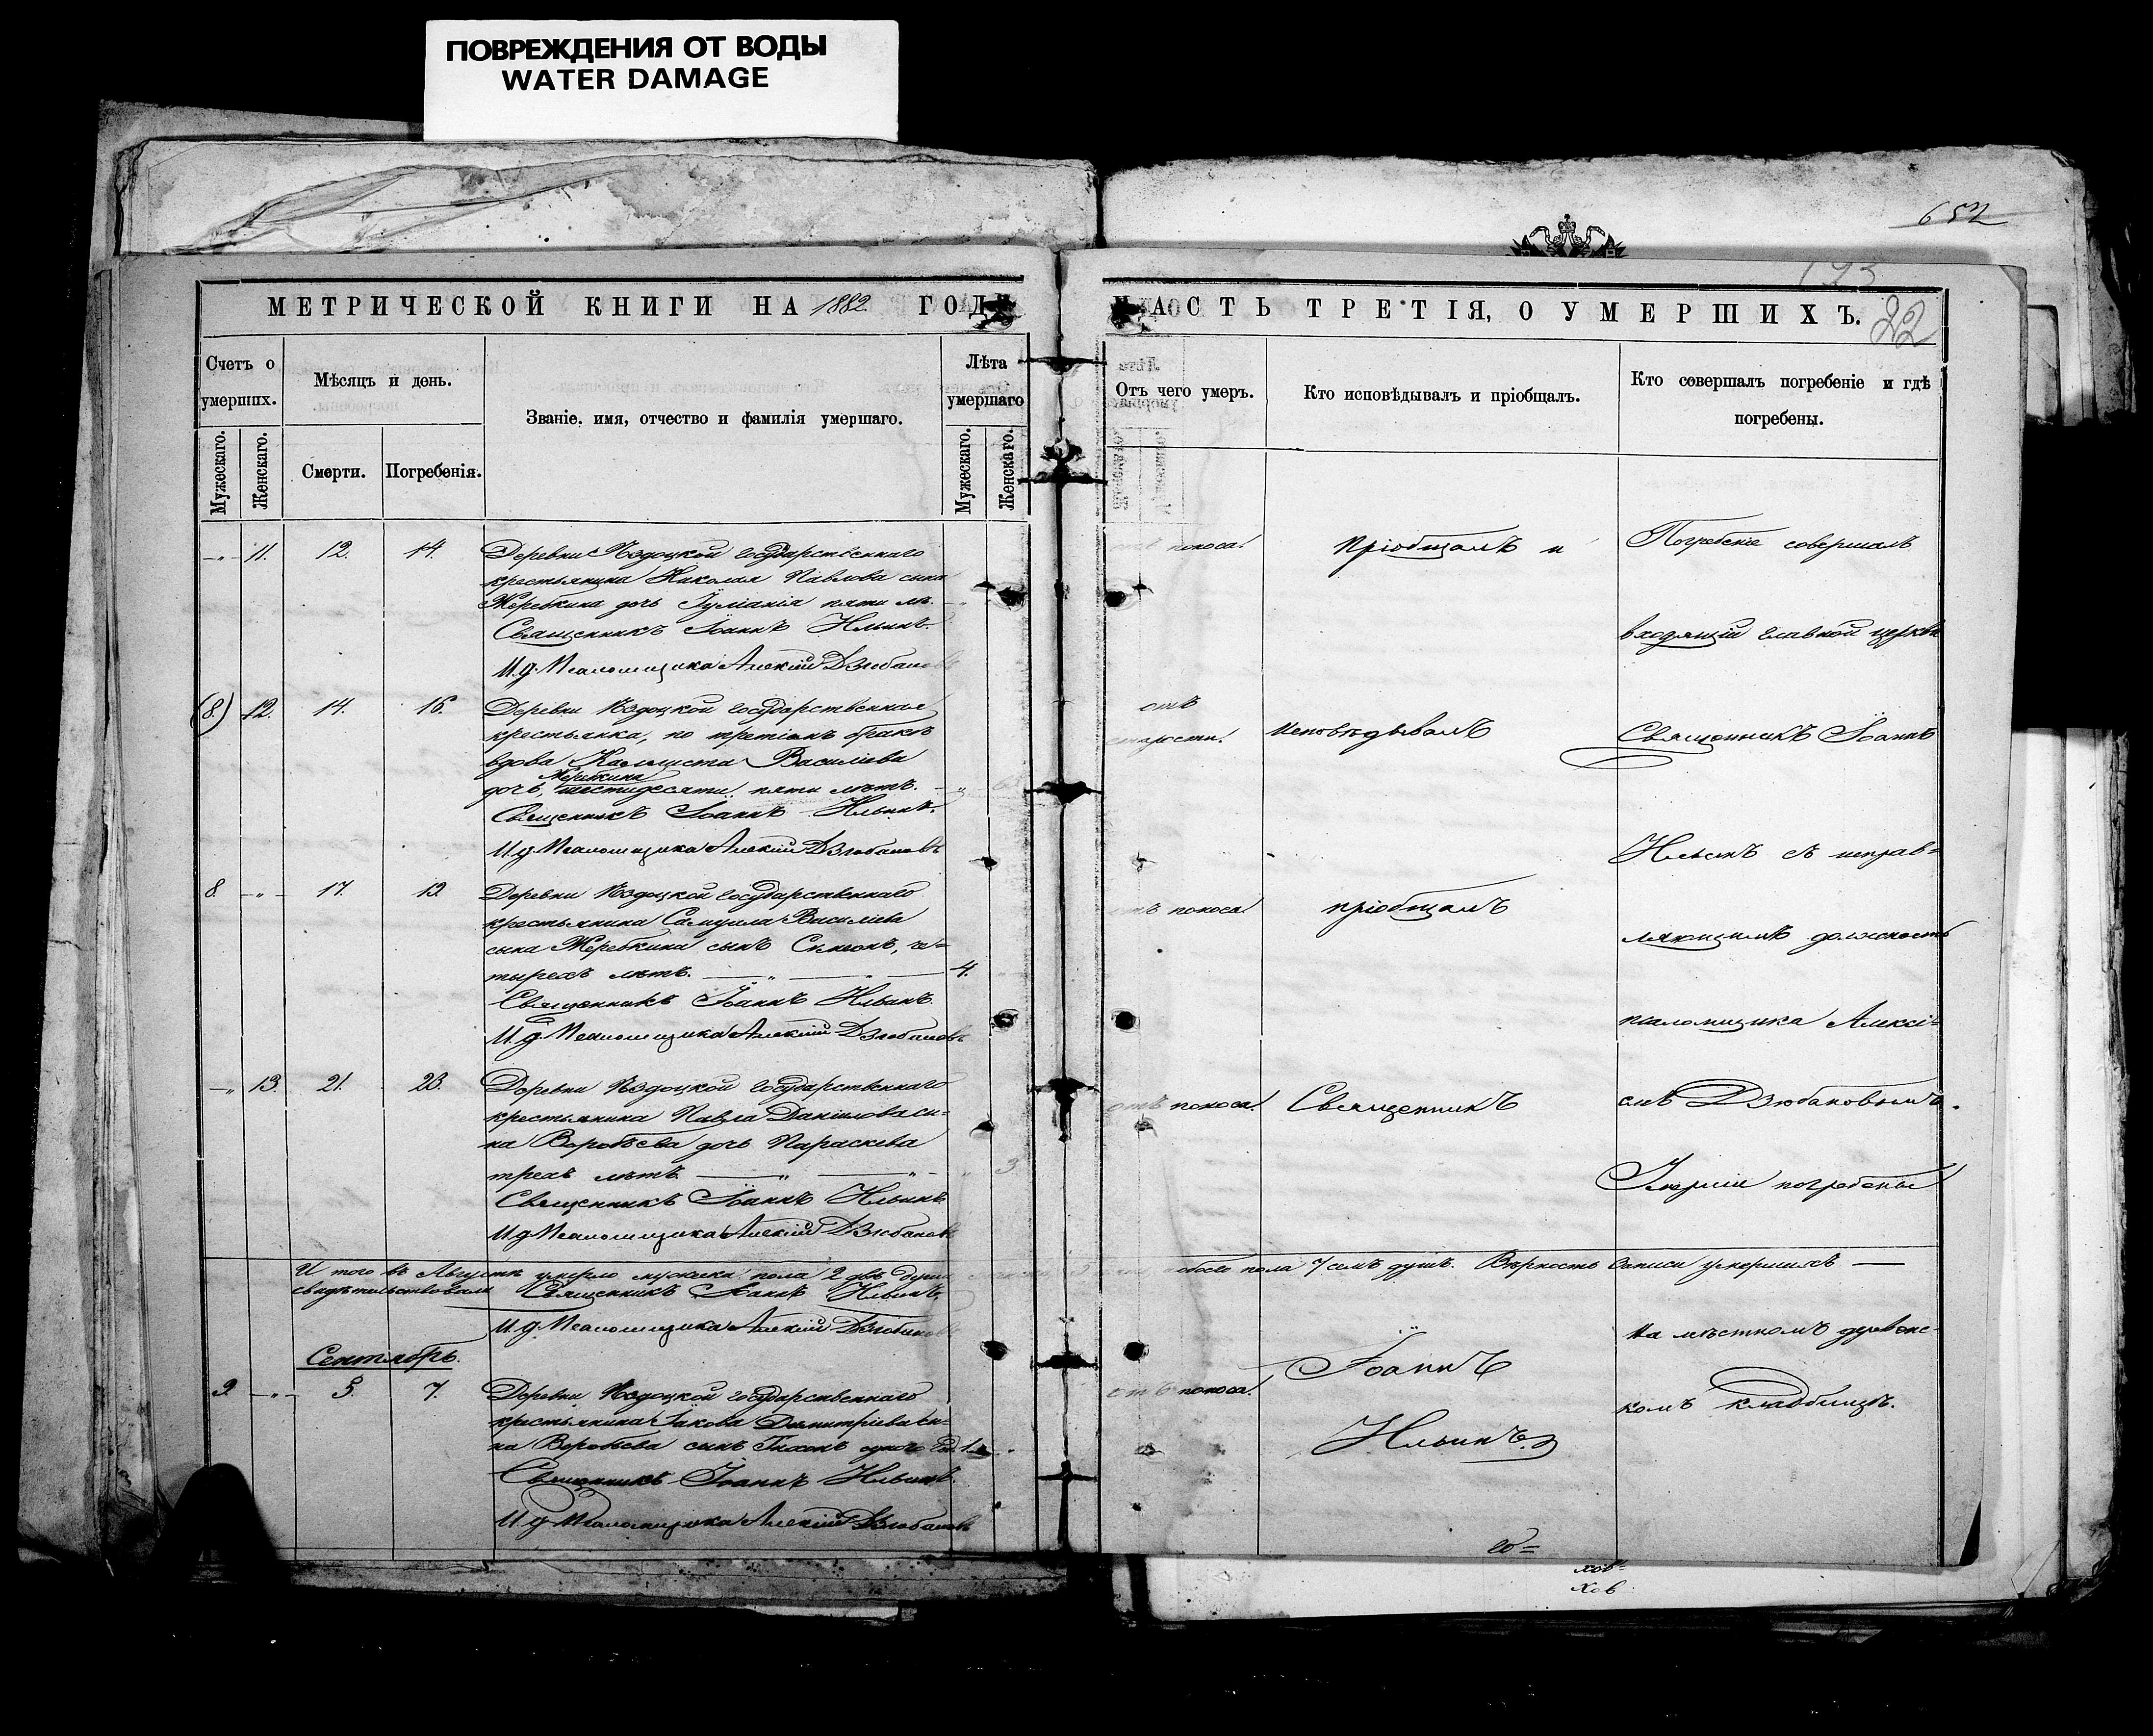 ПОВРЕЖДЕНИЯ ОТ ВОДЫ
WATER DAMAGE
652
МЕТРИЧЕСКОЙ КНИГИ НА 1882. ГОДЪ
Счетъ о умершихъ.
Мѣсяцъ и день.
Званіе, имя, отчество и фамилія умершаго.
Лѣта умершаго
Мужескаго.
Женскаго.
Смерти.
Погребенія.
Мужескаго.
Женскаго.
11. 12. 14. Деревни Ѣздоцкой государственнаго
крестьянина Николая Павлова сына
Жеребкина дочь Іуліанія пяти лѣ.
Священникъ Іоаннъ Ильинъ.
И. д. Псаломщика Алексій Дзюбановъ
(8.) 12. 14. 16. Деревни Ѣздоцкой государственная
крестьянка, по третіемъ бракѣ
вдова Каллиста Василіева
Жеребкина
дочь, шестидесяти пяти лѣтъ.
Священникъ Іоаннъ Ильинъ.
И. д. Псаломщика Алексій Дзюбановъ
8. 17. 19. Деревни Ѣздоцкой государственнаго
крестьянина Самуила Василіева
сына Жеребкина сынъ Симеонъ, че-
тырехъ лѣтъ. 4.
Священникъ Іоаннъ Ильинъ.
И. д. Псаломщика Алексій Дзюбановъ
13. 21. 23. Деревни Ѣздоцкой государственнаго
крестьянина Павла Даніилова сы-
на Воробьева дочь Параскева
трехъ лѣтъ 3
Священникъ Іоаннъ Ильинъ.
И. д. Псаломщика Алексій Дзюбановъ
И того въ Августѣ умерло мужска пола 2 двѣ души
свидѣтельствовали Священникъ Іоаннъ Ильинъ,
И. д. Псаломщика Алексій Дзюбановъ
Сентябрь.
9. 5. 7. Деревни Ѣздоцкой государственнаго
крестьянина Іакова Димитріева сы-
на Воробьева сынъ Тихонъ одного год. 1.
Священникъ Іоаннъ Ильинъ.
И. д. Псаломщика Алексій Дзюбановъ
ЧАСТЬ ТРЕТІЯ, О УМЕРШИХЪ.
22
Отъ чего умеръ.
Кто исповѣдывалъ и пріобщалъ.
Кто совершалъ погребеніе и гдѣ погребены.
поноса.
отъ
старости.
отъ поноса.
отъ поноса.
обоего пола 7 семь душъ. Вѣрность записи умершихъ
отъ поноса.
Пріобщалъ и
исповѣдывалъ
пріобщалъ
Священникъ
Іоаннъ
Ильинъ.
Погребеніе совершалъ
входящій главной церкви
Священникъ Іоаннъ
Ильинъ съ исправ-
ляющимъ должность
псаломщика Алексі-
емъ Дзюбановымъ.
Умершіе погребены
на мѣстномъ деревенс-
комъ кладбищѣ.
хов